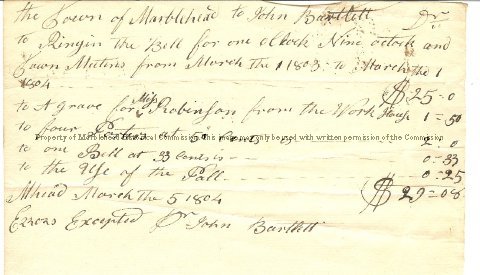 the Town of Marblehead to John Bartlett Dr
to Ringin the Bell for one Clock Nine oclock and
Town Meetins from March the 1 1803 to March the 1
1804 $25-0
to A grave for Miss Robinson from the Work House 1=50
Property of Marblehead Historical Commission This image may only be used with written permission of the Commission
to four at 50 2=0
to one Bell at 33 Cents 0=33
to the Use of the Pall 0=25
Mhead March the 5 1804 $29=08
Errors Excepted Pr John Bartlett